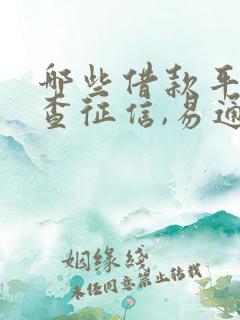 哪些借款平
查征信,易通
姻缘线
未经同意禁止转载